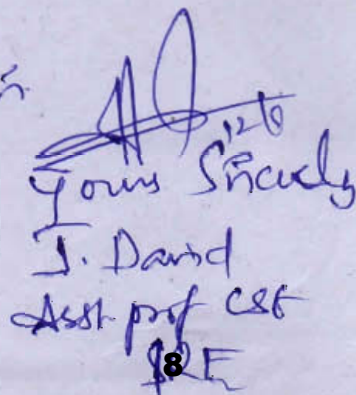 12/6
Yours Sincerely
J. David
Asst prof CSE
8